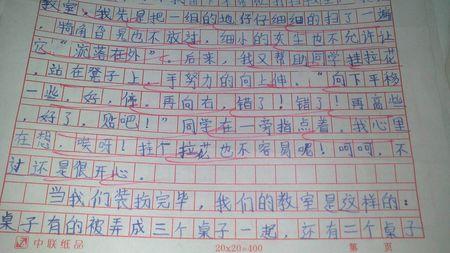 教室。我先是把一组的地仔仔细细的扫了一遍
犄角旮旯也不放过，细小的灰尘也不允许让
它“流落在外”。后来，我又帮助同学挂拉花
，站在凳子上，手努力的向上伸。“向下平移
一些，好，停。再向右，错了！错了！再高些
，好了，贴吧！”同学在一旁指点着，我心里
在想，唉呀！挂个拉花也不容易呢！呵呵，不
过还是很开心。
当我们装扮完毕，我们的教室是这样的：
桌子有的被弄成三个桌子一起，还有二个桌子
中联纸品 20×20=400 第 页